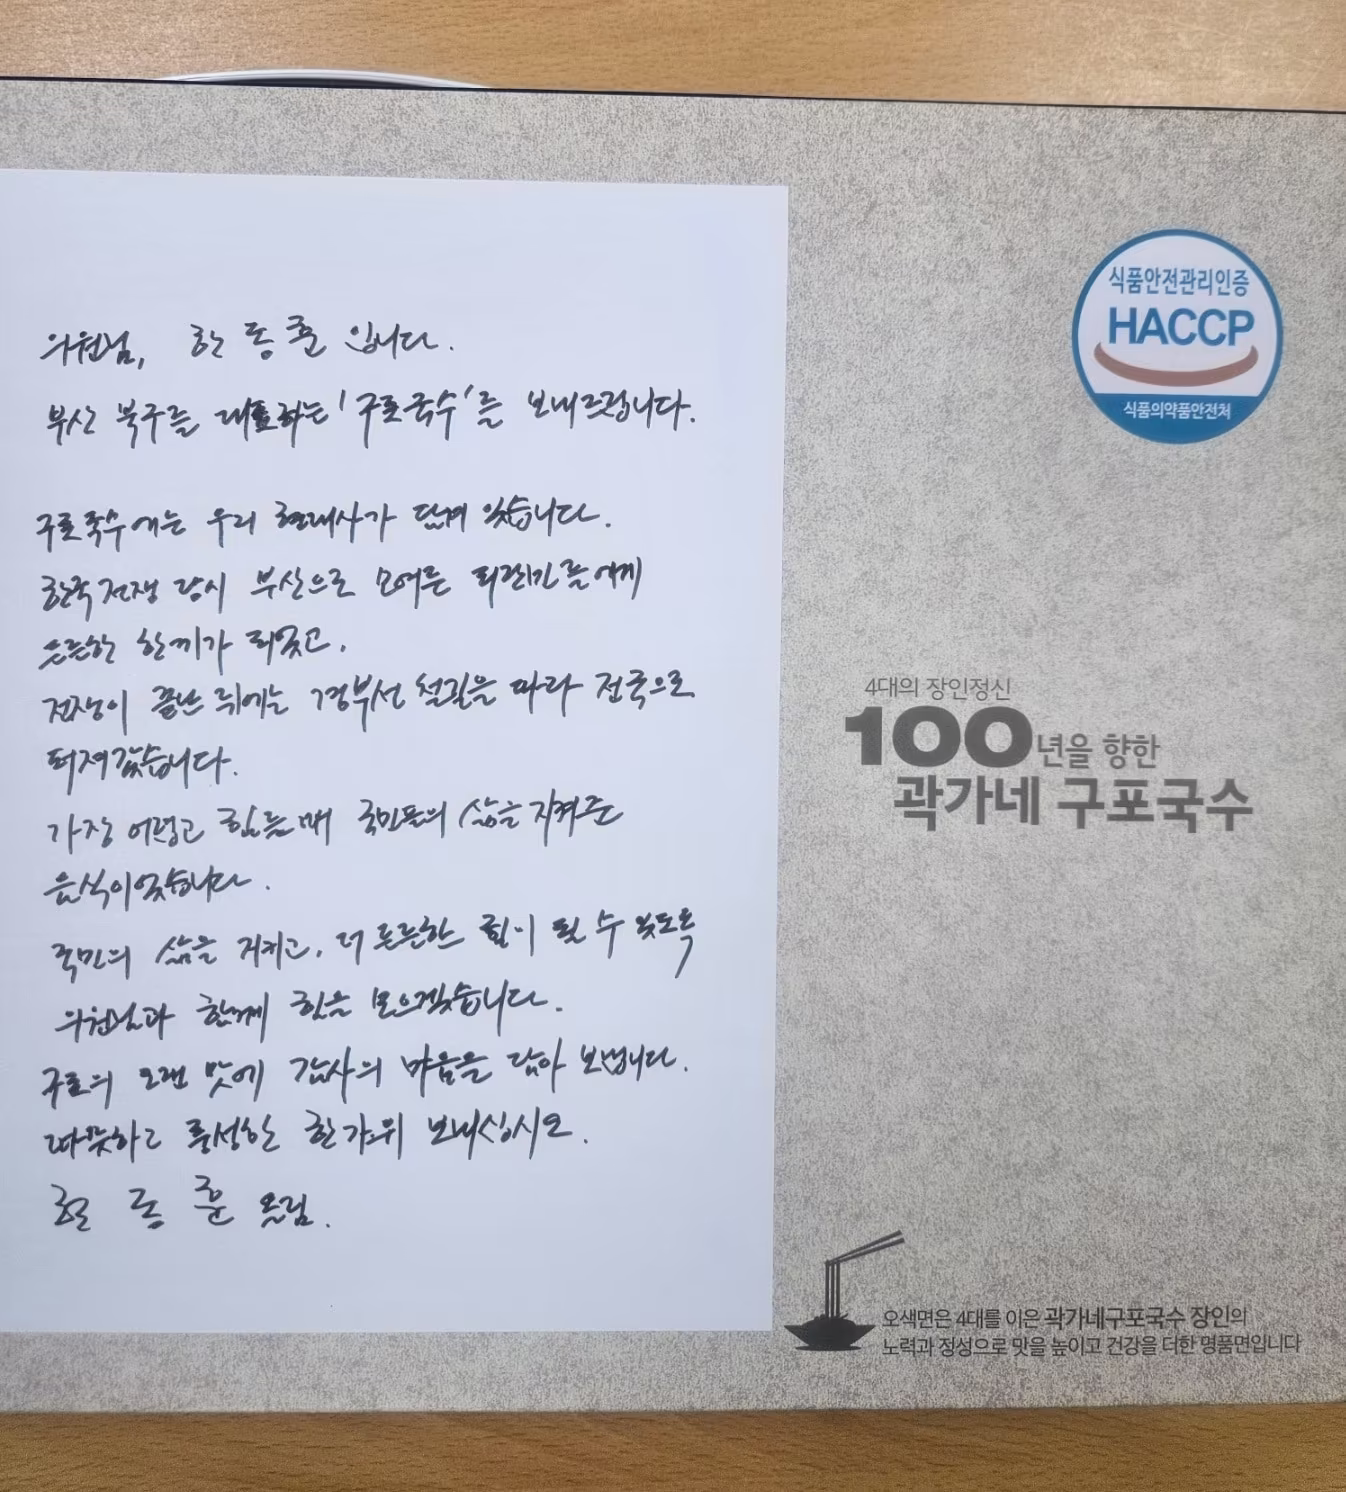 의원님, 한동훈입니다.
부산 북구를 대표하는 '구포국수'를 보내드립니다.
구포국수에는 우리 현대사가 담겨 있습니다.
한국전쟁 당시 부산으로 모여든 피란민들에게
든든한 한끼가 되었고,
전쟁이 끝난 뒤에는 경부선 철길을 따라 전국으로
퍼져갔습니다.
가장 어렵고 힘들 때 국민들의 삶을 지켜준
음식이었습니다.
국민의 삶을 지키고, 더 든든한 힘이 될 수 있도록
의원님과 함께 힘을 모으겠습니다.
구포의 오랜 맛에 감사의 마음을 담아 보냅니다.
따뜻하고 풍성한 한가위 보내십시오.
한동훈 올림.
식품안전관리인증
HACCP
식품의약품안전처
4대의 장인정신
100년을 향한
곽가네 구포국수
오색면은 4대를 이은 곽가네구포국수 장인의
노력과 정성으로 맛을 높이고 건강을 더한 명품면입니다